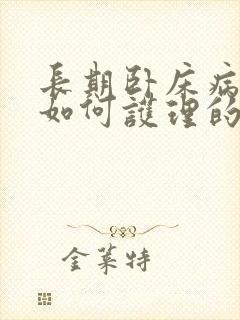 長期卧床病
如何護理的
金莱特